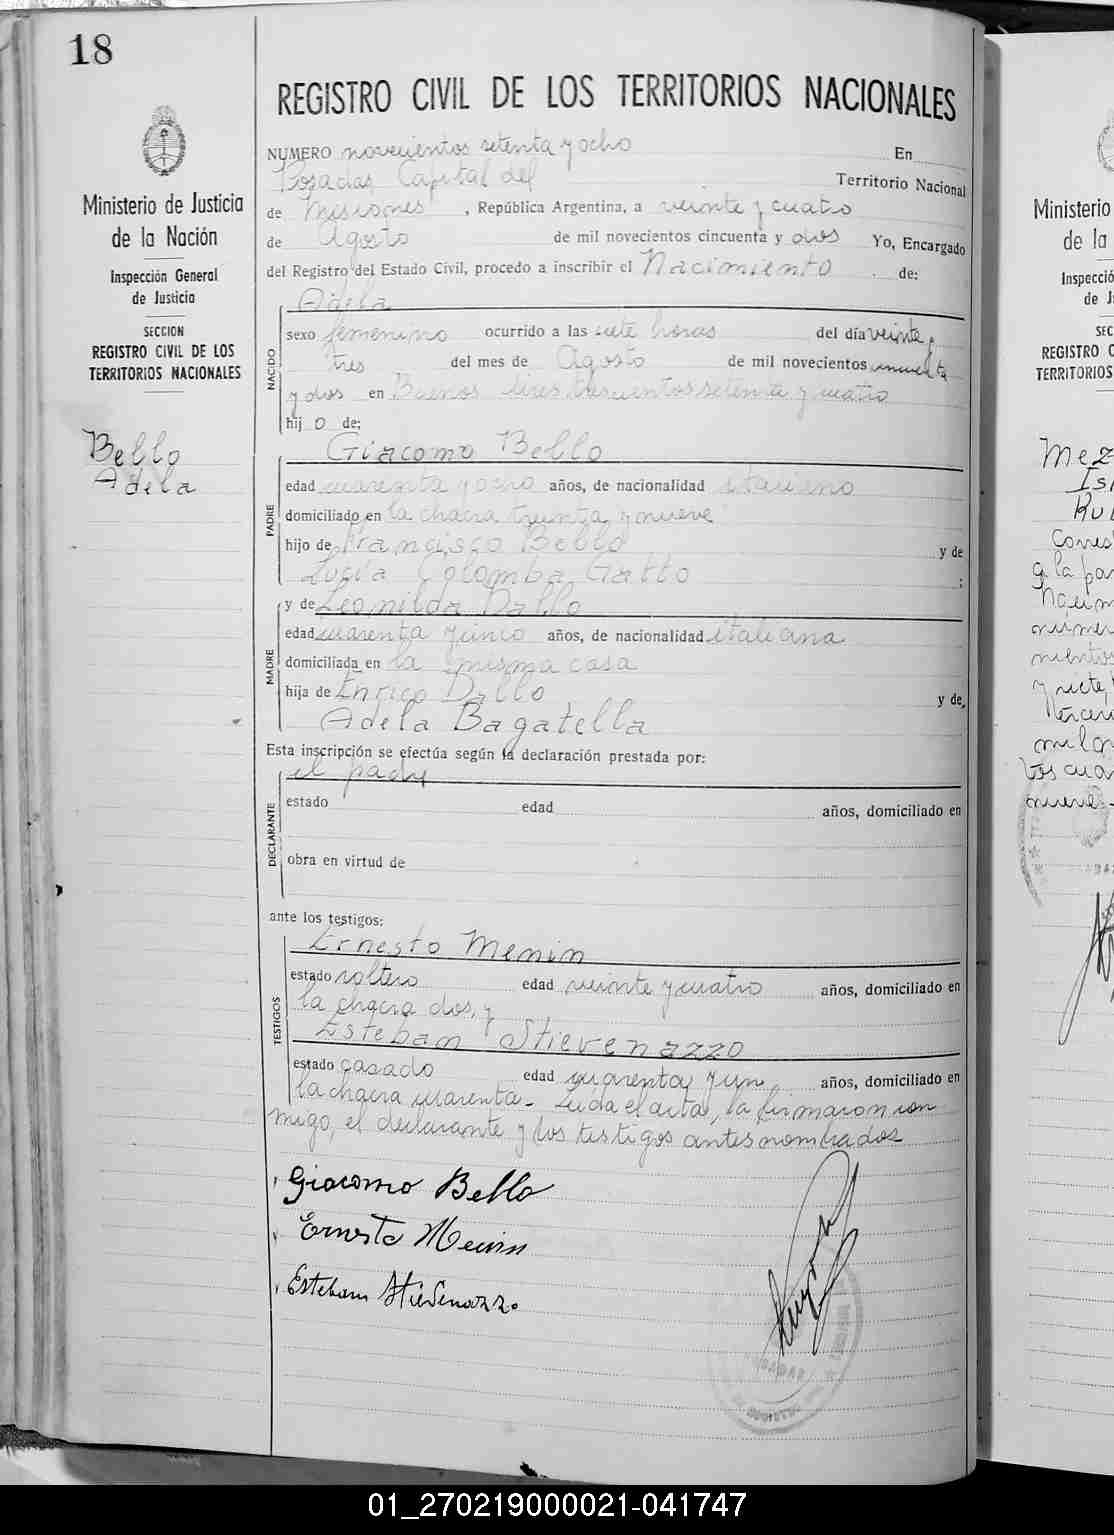 18
REGISTRO CIVIL DE LOS TERRITORIOS NACIONALES
Ministerio de Justicia
de la Nación
Inspección General
de Justicia
SECCION
REGISTRO CIVIL DE LOS
TERRITORIOS NACIONALES
Bello
Adela
NUMERO novecientos setenta y ocho En
Posadas Capital del Territorio Nacional
de Misiones, República Argentina, a veinte y cuatro
de Agosto de mil novecientos cincuenta y dos Yo, Encargado
del Registro del Estado Civil, procedo a inscribir el Nacimiento de:
NACIDO
Adela
sexo femenino ocurrido a las siete horas del día veinte y
tres del mes de Agosto de mil novecientos cincuenta
y dos en Buenos Aires trescientos setenta y cuatro
hij o de:
PADRE
Giacomo Bello
edad cuarenta y ocho años, de nacionalidad italiano
domiciliado en la chacra treinta y nueve
hijo de Francisco Bello y de
Lucía Colomba Gatto ;
y de Leonilda Dallo
MADRE
edad cuarenta y cinco años, de nacionalidad italiana
domiciliada en la misma casa
hija de Enrico Dallo y de,
Adela Bagatella
Esta inscripción se efectúa según la declaración prestada por:
DECLARANTE
el padre
estado edad años, domiciliado en
obra en virtud de
ante los testigos:
TESTIGOS
Ernesto Menin
estado soltero edad veinte y cuatro años, domiciliado en
la chacra dos, y
Esteban Stievenazzo
estado casado edad cuarenta y un años, domiciliado en
la chacra cuarenta - Leida el acta, la firmaron con
migo, el declarante y los testigos antes nombrados
Giacomo Bello
Ernesto Menin
Esteban Stievenazzo
POSADAS
Ministerio
de la
Inspecció
de J
SEC
REGISTRO C
TERRITORIOS
01_270219000021-041747